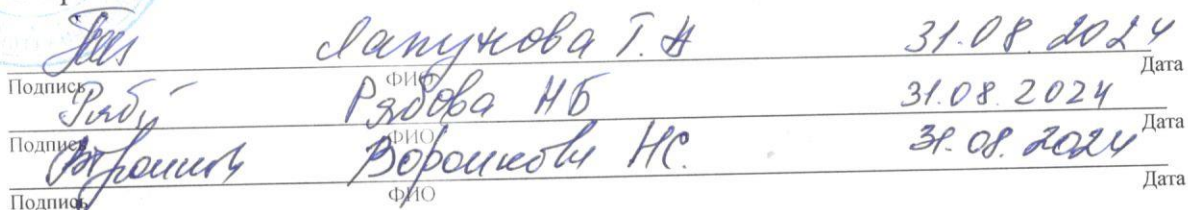 Лапунова Т.Н 31.08.2024
Подпись ФИО Дата
Рябу Рябова НБ 31.08.2024
Подпись ФИО Дата
Воронкова НС. 31.08.2024
Подпись ФИО Дата